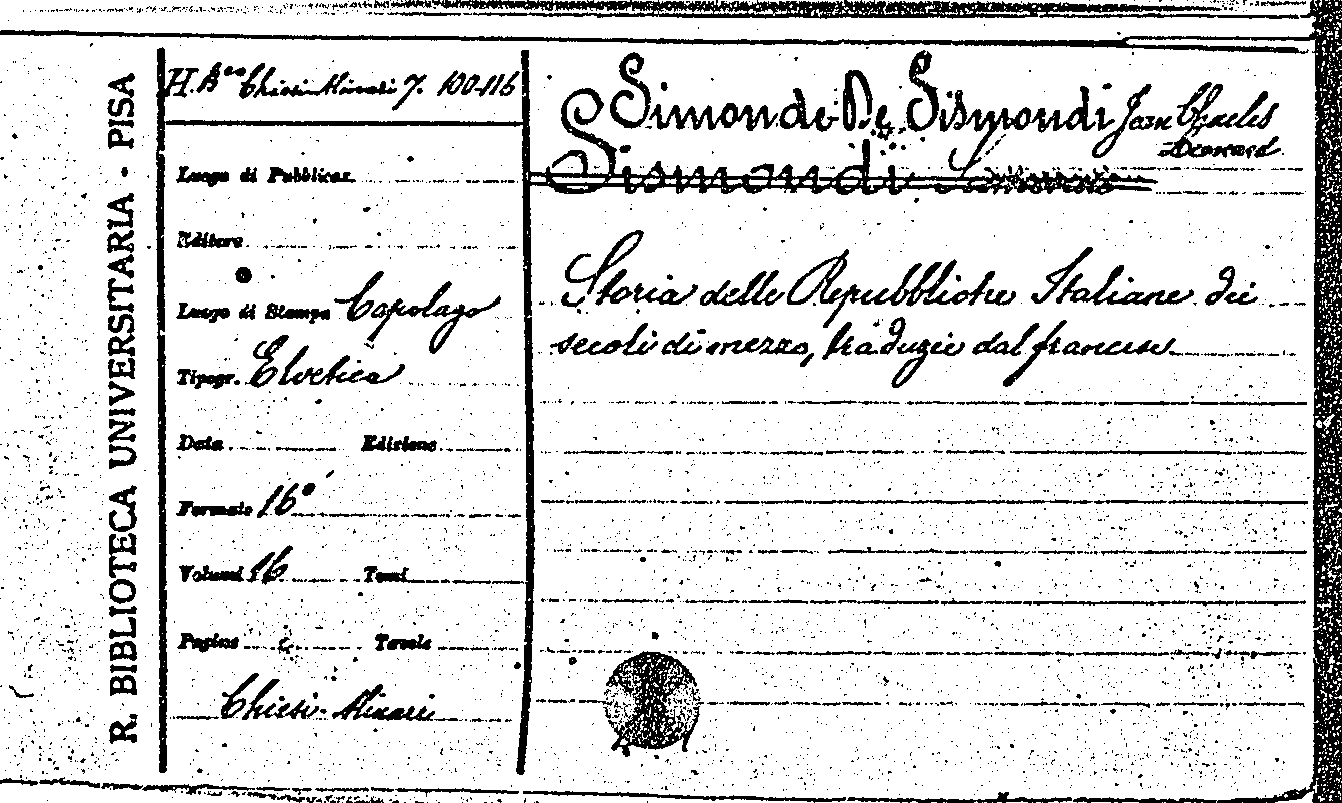 R. BIBLIOTECA UNIVERSITARIA - PISA
H. Chiesi-Minari 7. 100-116
Luogo di Pubblicaz.
Editore
Luogo di Stampa Capolago
Tipogr. Elvetica
Data Edizione
Formato 16°
Volumi 16 Tomi
Pagine Tavole
Chiesi-Minari
Simonde De Sismondi Jean Charles
Leonard
Sismondi
Storia delle Repubbliche Italiane dei
secoli di mezzo, traduzie dal francese